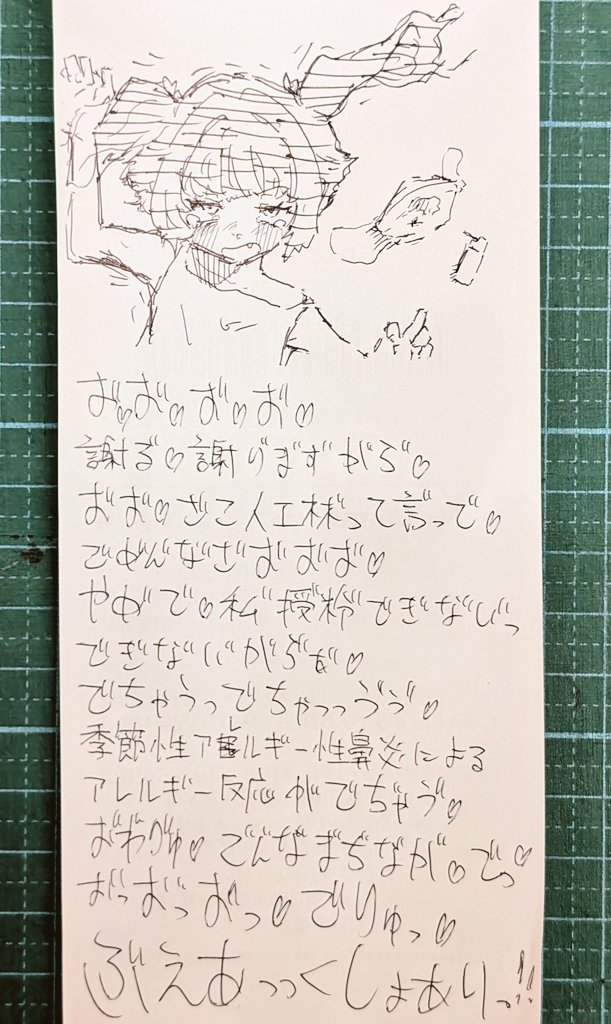 お゛♡お゛♡お゛♡お゛♡
謝る゛♡謝り゛ま゛ず がら゛♡
お゛お゛♡ざこ人工林゛って言っで♡
ごめ゛ん゛なざお゛お゛お゛♡
やめ゛で♡私゛授粉゛でぎな゛い゛っ
でぎな゛い゛がら゛ぁ゛♡
でちゃうっでちゃっっゔゔ♡
季節性アレルギー性鼻炎による
アレルギー反応がでちゃゔ♡
お゛わ゛り゛ゅ♡ でん゛な ま゛ぢなが♡でっ♡
お゛っお゛っお゛っ♡ でりゅっ♡
ぶえあっっくしょありっ!!